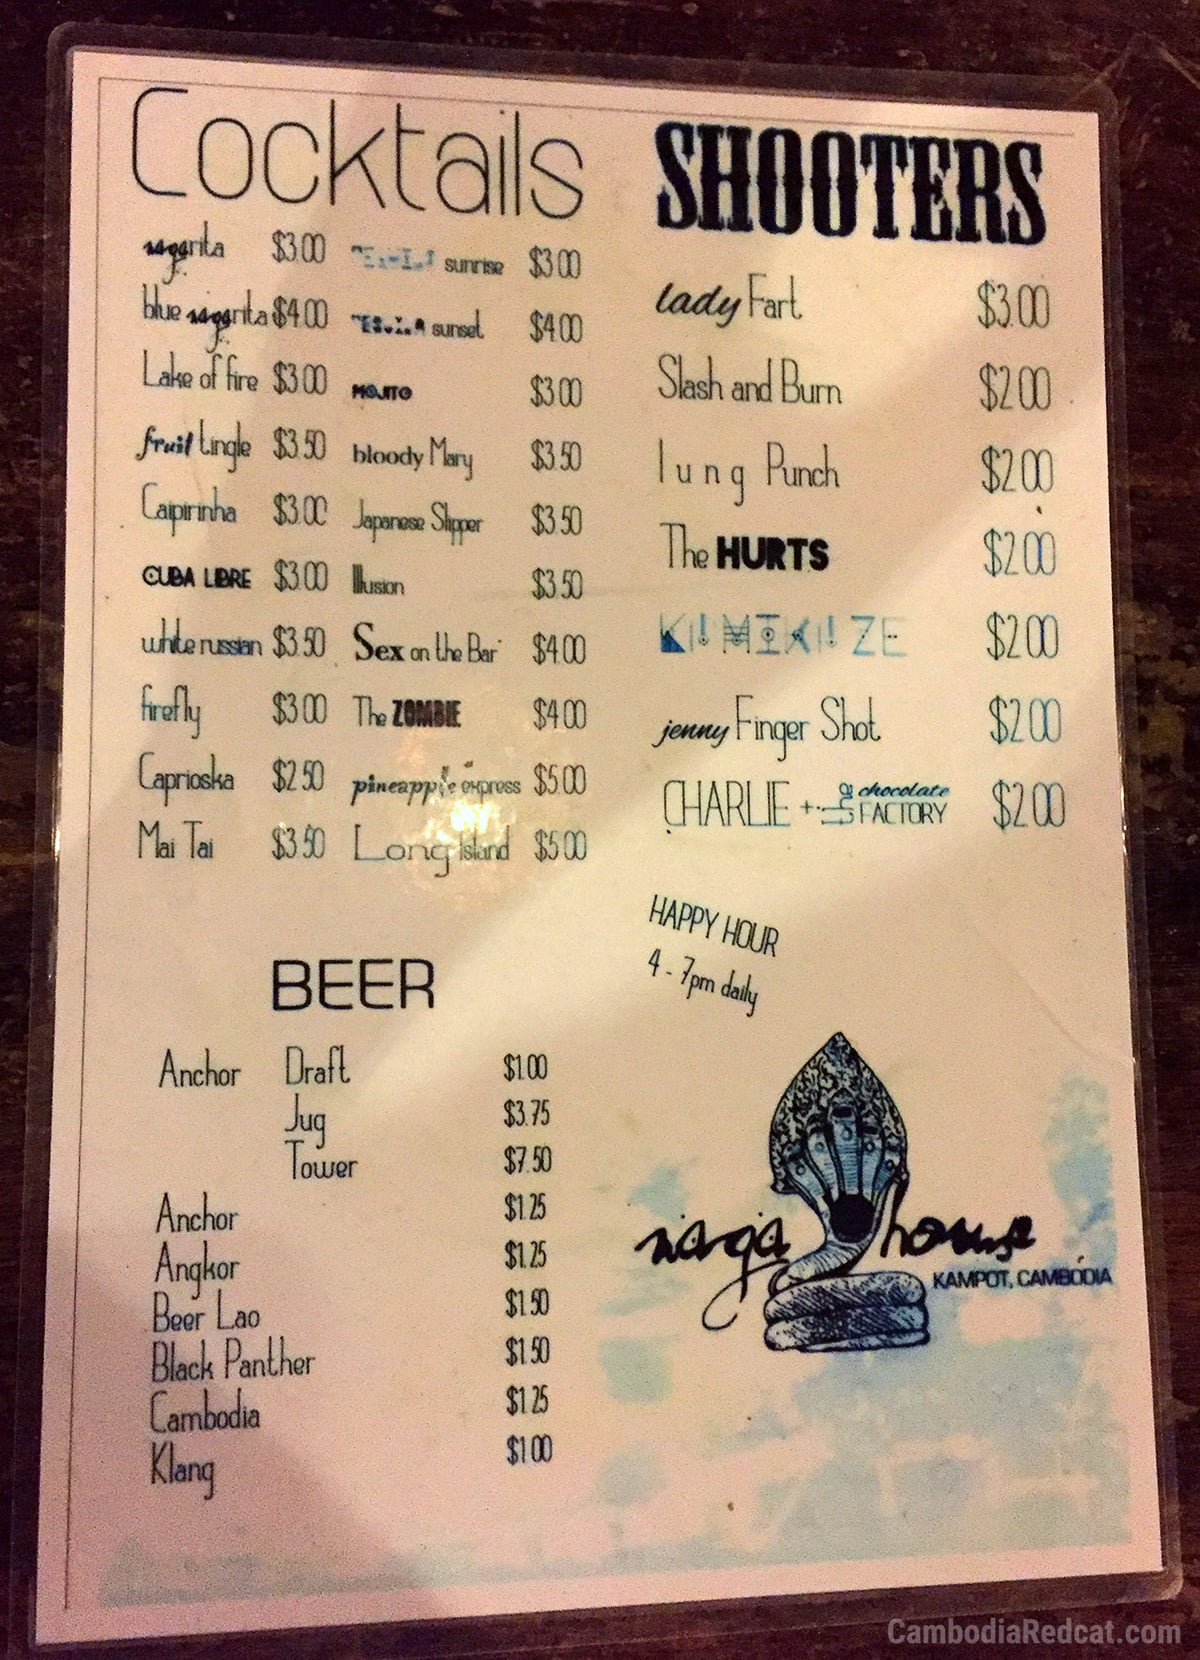 Cocktails
margarita $3.00
blue margarita $4.00
Lake of fire $3.00
fruit tingle $3.50
Caipirinha $3.00
CUBA LIBRE $3.00
white russian $3.50
firefly $3.00
Caprioska $2.50
Mai Tai $3.50
TEQUILA sunrise $3.00
TEQUILA sunset $4.00
MOJITO $3.00
bloody Mary $3.50
Japanese Slipper $3.50
Illusion $3.50
Sex on the Bar $4.00
The ZOMBIE $4.00
pineapple express $5.00
Long Island $5.00
SHOOTERS
lady Fart $3.00
Slash and Burn $2.00
lung Punch $2.00
The HURTS $2.00
K!MIK!ZE $2.00
jenny Finger Shot $2.00
CHARLIE + the chocolate FACTORY $2.00
HAPPY HOUR
4 - 7pm daily
BEER
Anchor Draft $1.00
Jug $3.75
Tower $7.50
Anchor $1.25
Angkor $1.25
Beer Lao $1.50
Black Panther $1.50
Cambodia $1.25
Klang $1.00
naga house
KAMPOT, CAMBODIA
CambodiaRedcat.com